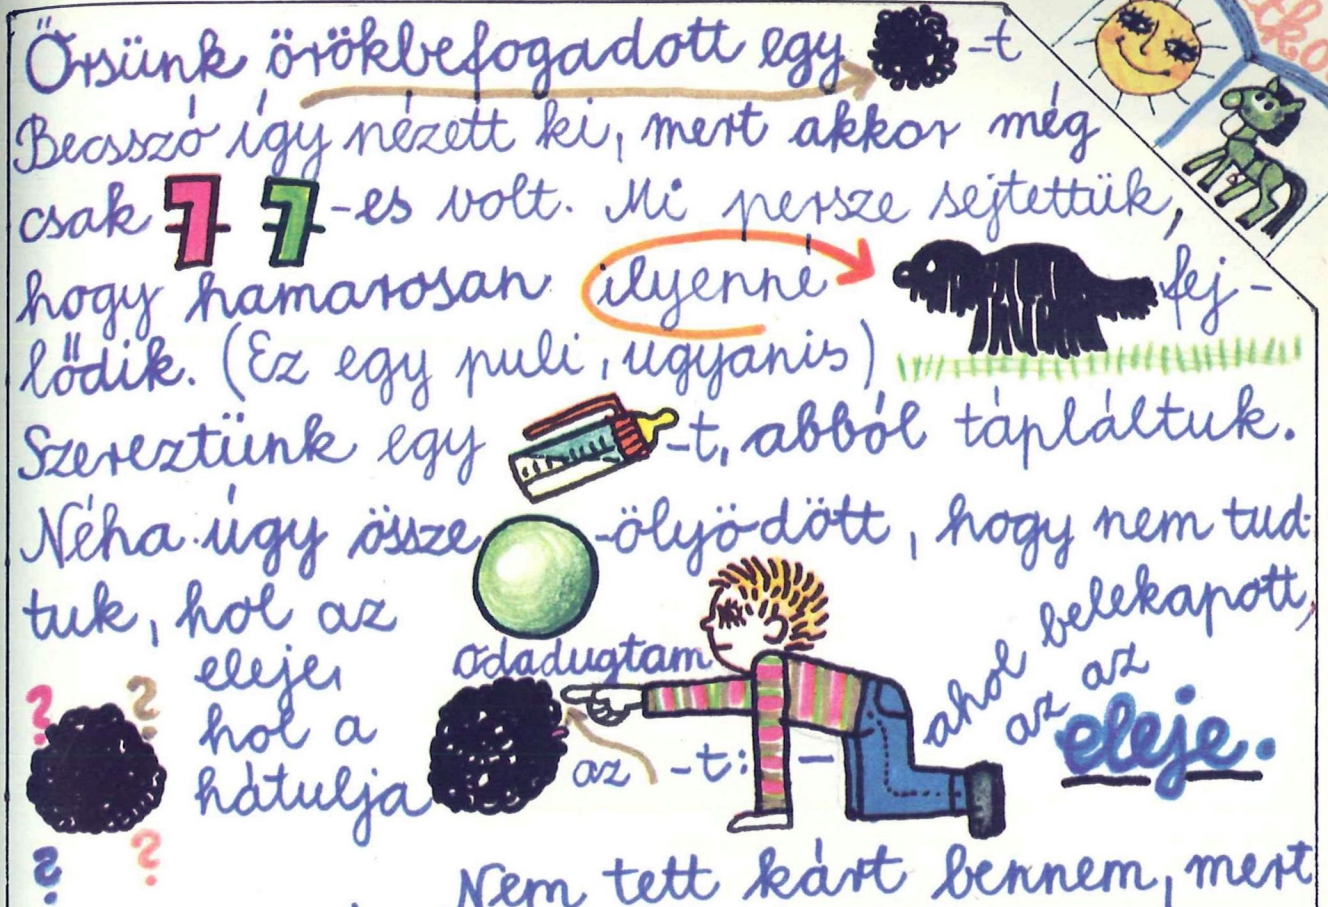 Őrsünk örökbefogadott egy -t
Becsszó így nézett ki, mert akkor még
csak 7 7-es volt. Mi persze sejtettük,
hogy hamarosan ilyenné fej-
lődik. (Ez egy puli, ugyanis)
Szereztünk egy -t, abból tápláltuk.
Néha úgy össze -ölyö-dött, hogy nem tud-
tuk, hol az
eleje,
hol a
hátulja
? ? ? ?
Odadugtam
az -t: -
ahol belekapott,
az az
eleje.
Nem tett kárt bennem, mert